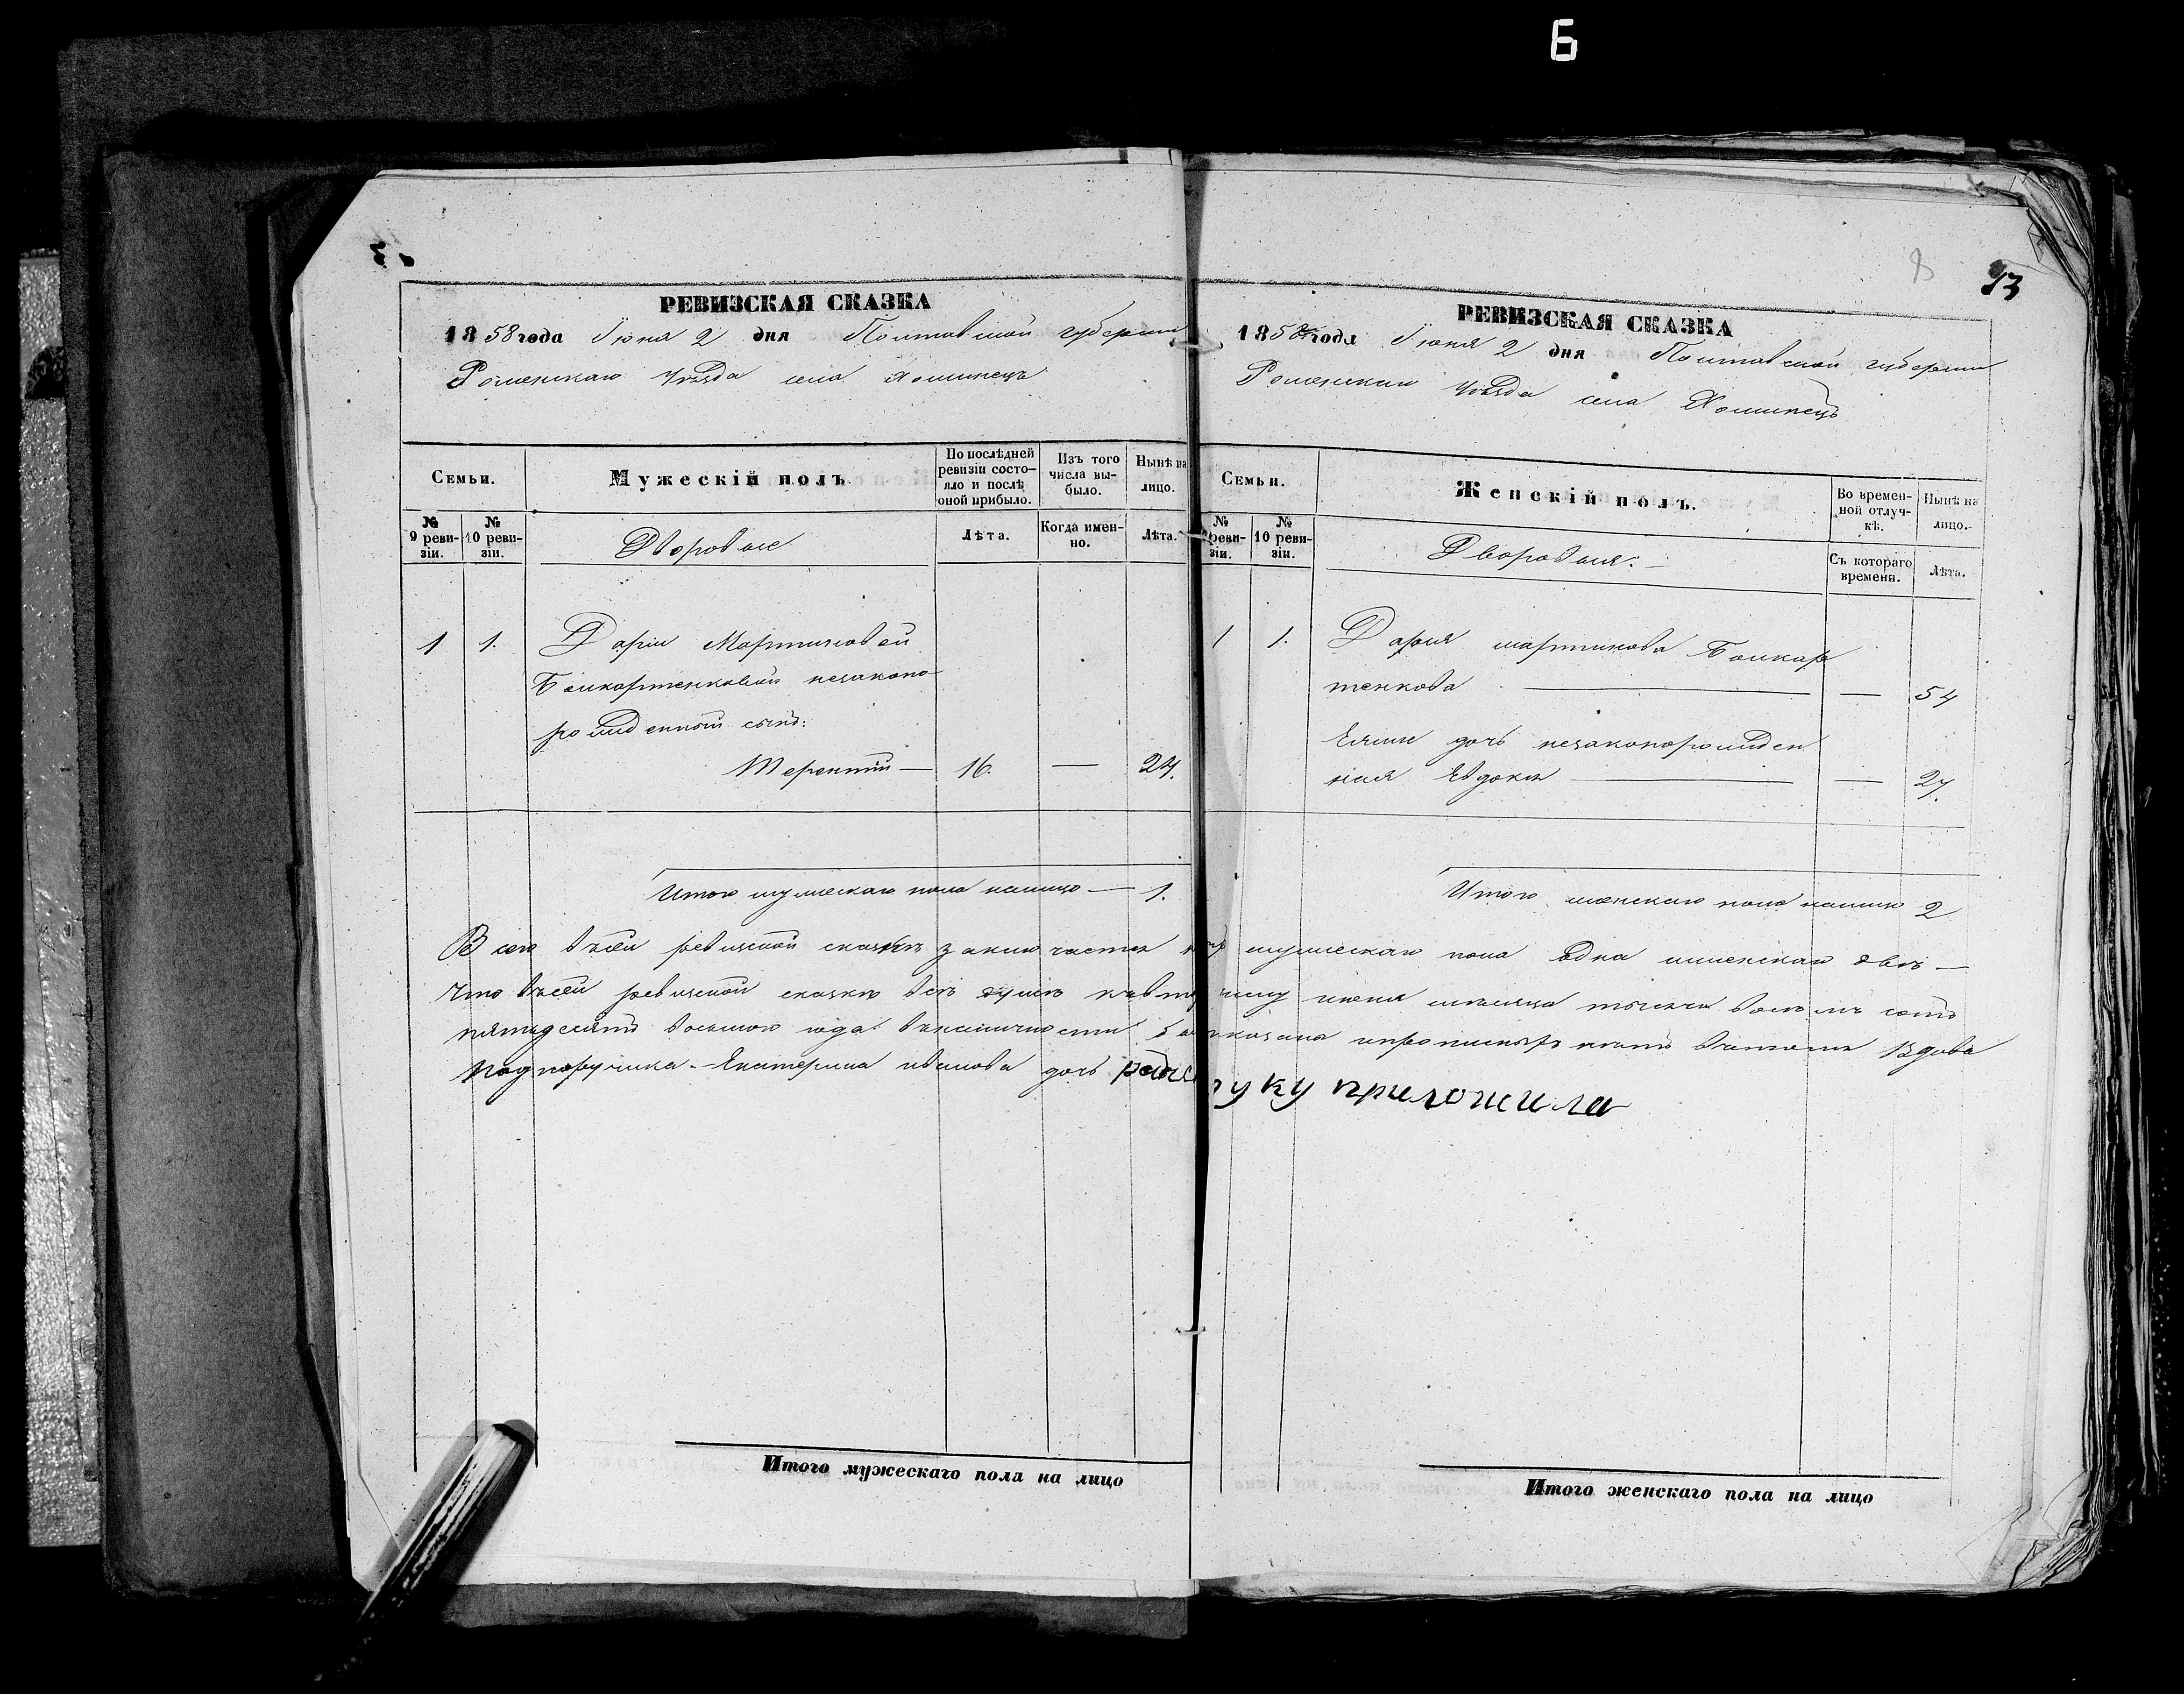 6
8
13
РЕВИЗСКАЯ СКАЗКА
1858 года Іюня 2 дня Полтавской губерніи
Роменскаго уѣзда села Хоминецъ
Семьи.
Мужескій полъ.
По послѣдней ревизіи состо-
яло и послѣ оной прибыло.
Изъ того числа вы-
было.
Нынѣ на лицо.
№ 9 реви-
зіи.
№ 10 реви-
зіи.
Дворовые
Лѣта.
Когда имен-
но.
Лѣта.
1 1. Даріи Мартиновой
незаконо-
рожденный сынъ:
Терентій — 16. — 24.
Итого мужескаго пола налицо — 1.
РЕВИЗСКАЯ СКАЗКА
1858 года Іюня 2 дня Полтавской губерніи
Роменскаго уѣзда села Хоминецъ
Семьи.
Женскій полъ.
Во времен-
ной отлуч-
кѣ.
Нынѣ на лицо.
№ 9 реви-
зіи.
№ 10 реви-
зіи.
Дворовыя.
Съ котораго времени.
Лѣта.
1 1. Дарья мартинова
тенкова — — 54
Ея дочь незаконорожден
ная Евдокія — — 27.
Итого женскаго пола налицо 2
Всего въ сей ревизской сказкѣ заключается мужескаго пола одна женскаго двѣ —
Что въ сей ревизской сказкѣ всѣ души іюня мѣсяца тысяча восемъ сотъ
пятьдесятъ восьмого года вдова
подпоручика Екатерина иванова дочь руку приложила
Итого мужескаго пола на лицо
Итого женскаго пола на лицо